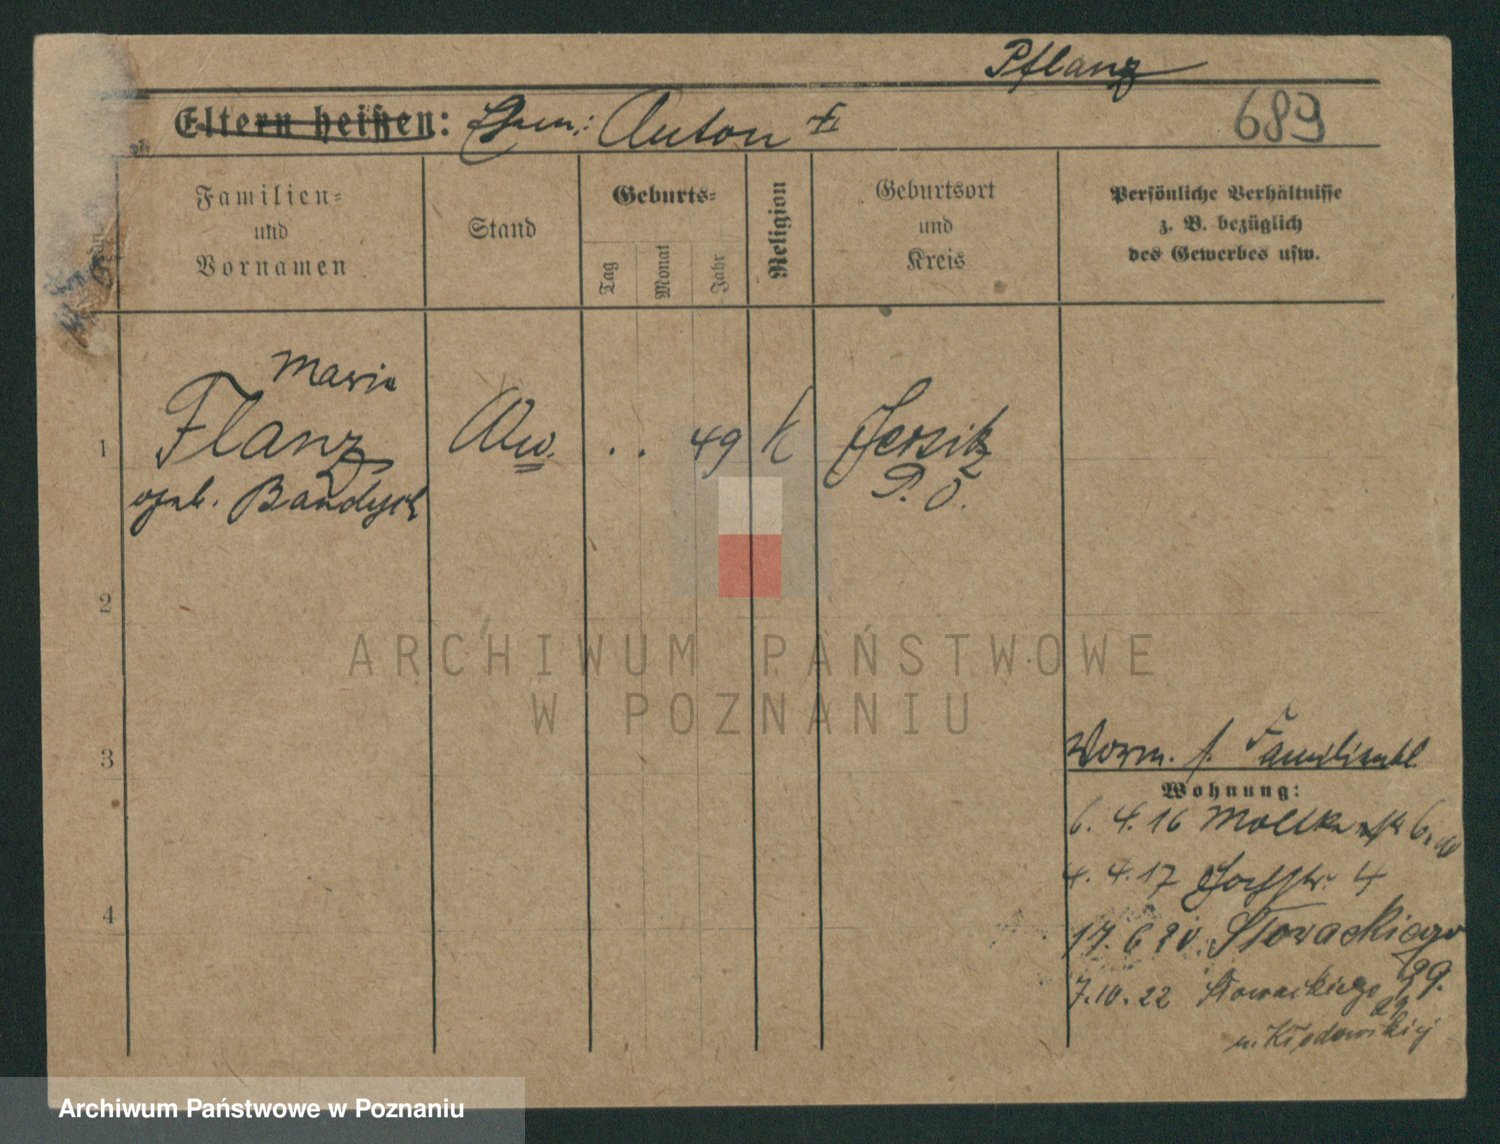 Pflanz
Eltern heißen: Ehem.: Anton
689
Familien-
und
Vornamen
Stand
Geburts-
Tag
Monat
Jahr
Religion
Geburtsort
und
Kreis
Persönliche Verhältnisse
z. B. bezüglich
des Gewerbes usw.
Maria
1 Flanz Ww. . . 49 k Jersitz
geb. Bandysch P. O.
2
3
4
Verm. s. Familienbl.
Wohnung:
6. 4. 16 Moltkestr 6
4. 4. 17 Hochstr. 4
17. 6 20. Słowackiego
29.
7.10.22 Słowackiego 29
ARCHIWUM PAŃSTWOWE
W POZNANIU
Archiwum Państwowe w Poznaniu